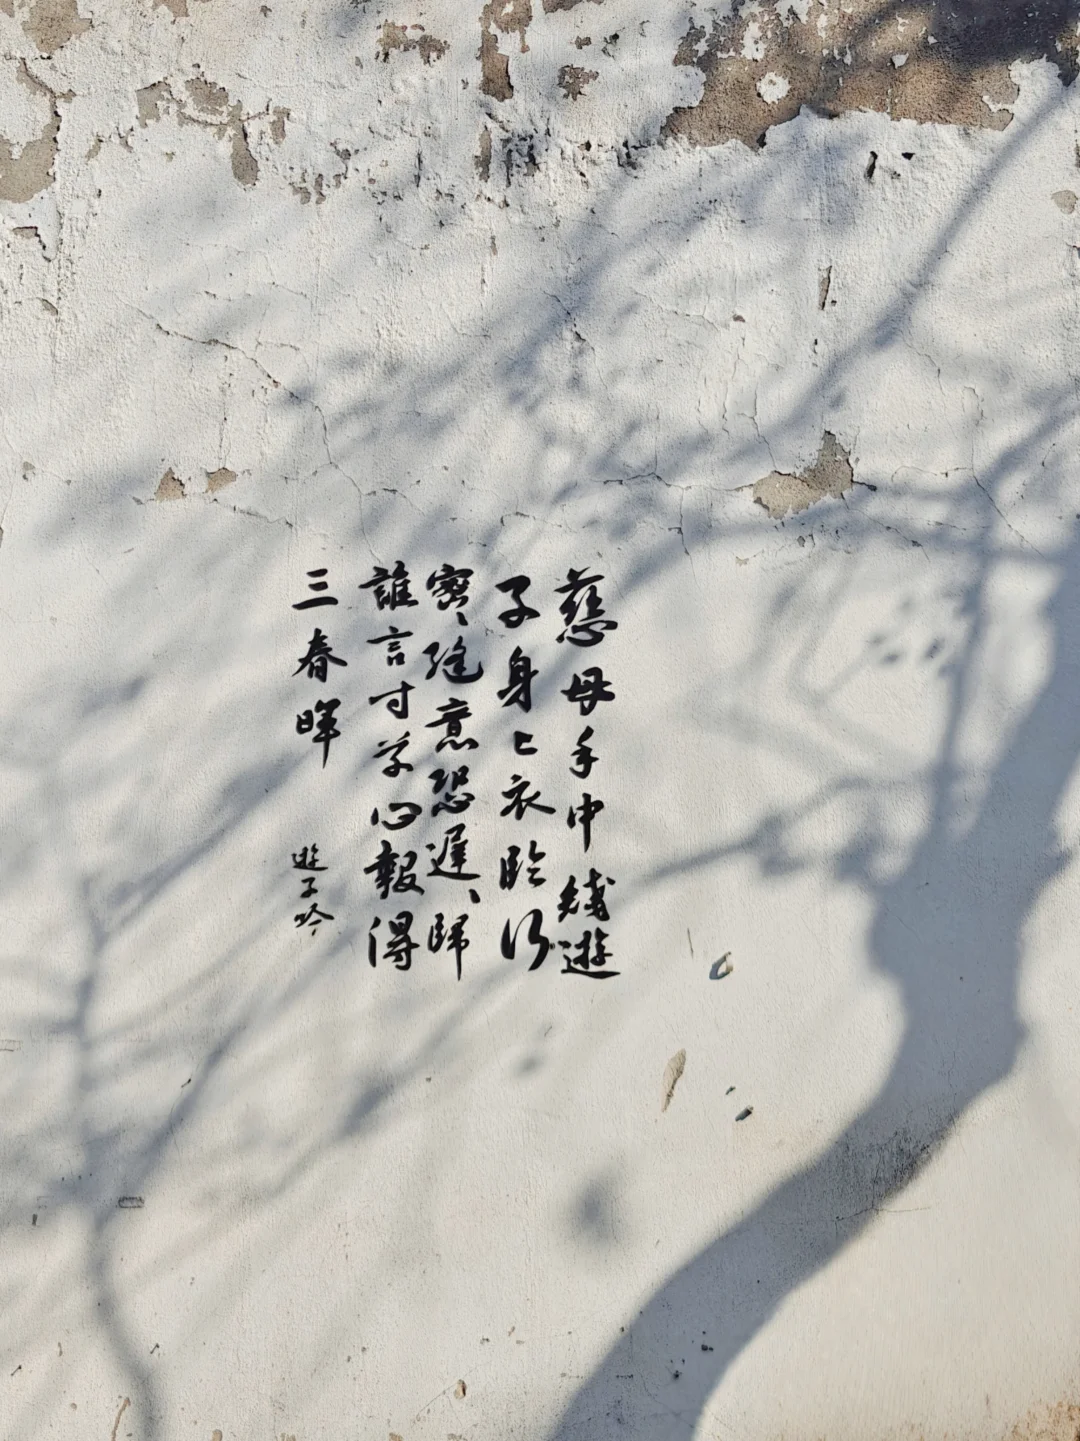 慈母手中綫遊
子身上衣臨行
密、縫意恐遲、歸
誰言寸草心報得
三春暉
遊子吟